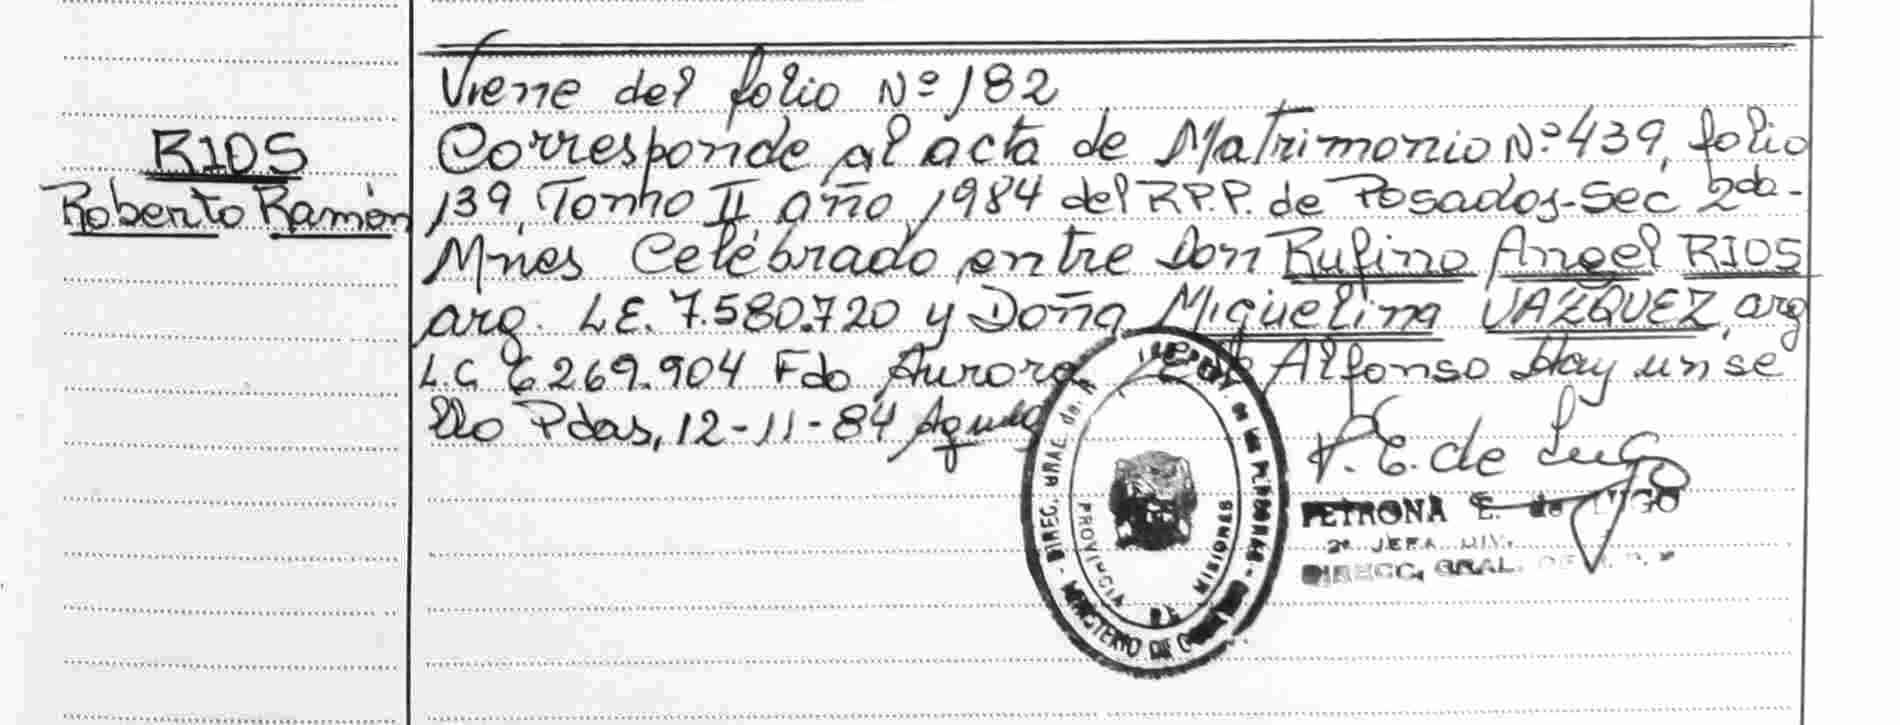 Viene del folio Nº 182
RIOS
Roberto Ramón
Corresponde al acta de Matrimonio Nº 439, folio
139, Tomo II año 1984 del R.P.P. de Posadas-Sec 2da-
Mnes Celebrado entre Don Rufino Angel RIOS
arg. L.E. 7.580.720 y Doña Miguelina VAZQUEZ, arg
L.C 6269.904 Fdo Aurora de Alfonso Hay un se
llo Pdas, 12-11-84
P. E. de Lugo
PETRONA E. de LUGO
2ª JEFA DIV.
DIRECC, GRAL.
DIREC. GRAL de DE LAS PERSONAS - MINISTERIO DE
PROVINCIA DE MISIONES